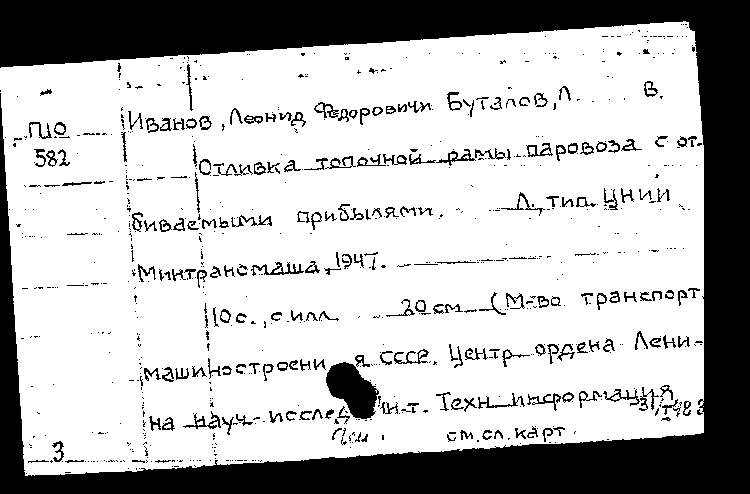 Иванов, Леонид Федорович и Буталов, Л. В.
П10
582
Отливка топочной рамы паровоза с от-
биваемыми прибылями. Л., тип. ЦНИИ
Минтрансмаша, 1947.
10 с., с илл. 20 см (М-во транспорт.
машиностроения СССР. Центр. ордена Лени-
на науч.-исслед. ин-т. Техн. информация
см. сл. карт.
3